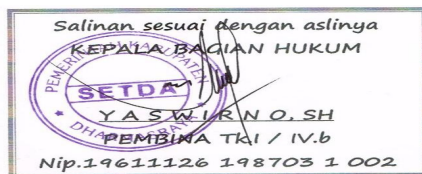 Salinan sesuai dengan aslinya
KEPALA BAGIAN HUKUM
PEMERINTAH KABUPATEN
SETDA
DHARMASRAYA
YASWIRNO, SH
PEMBINA Tk.I / IV.b
Nip.19611126 198703 1 002